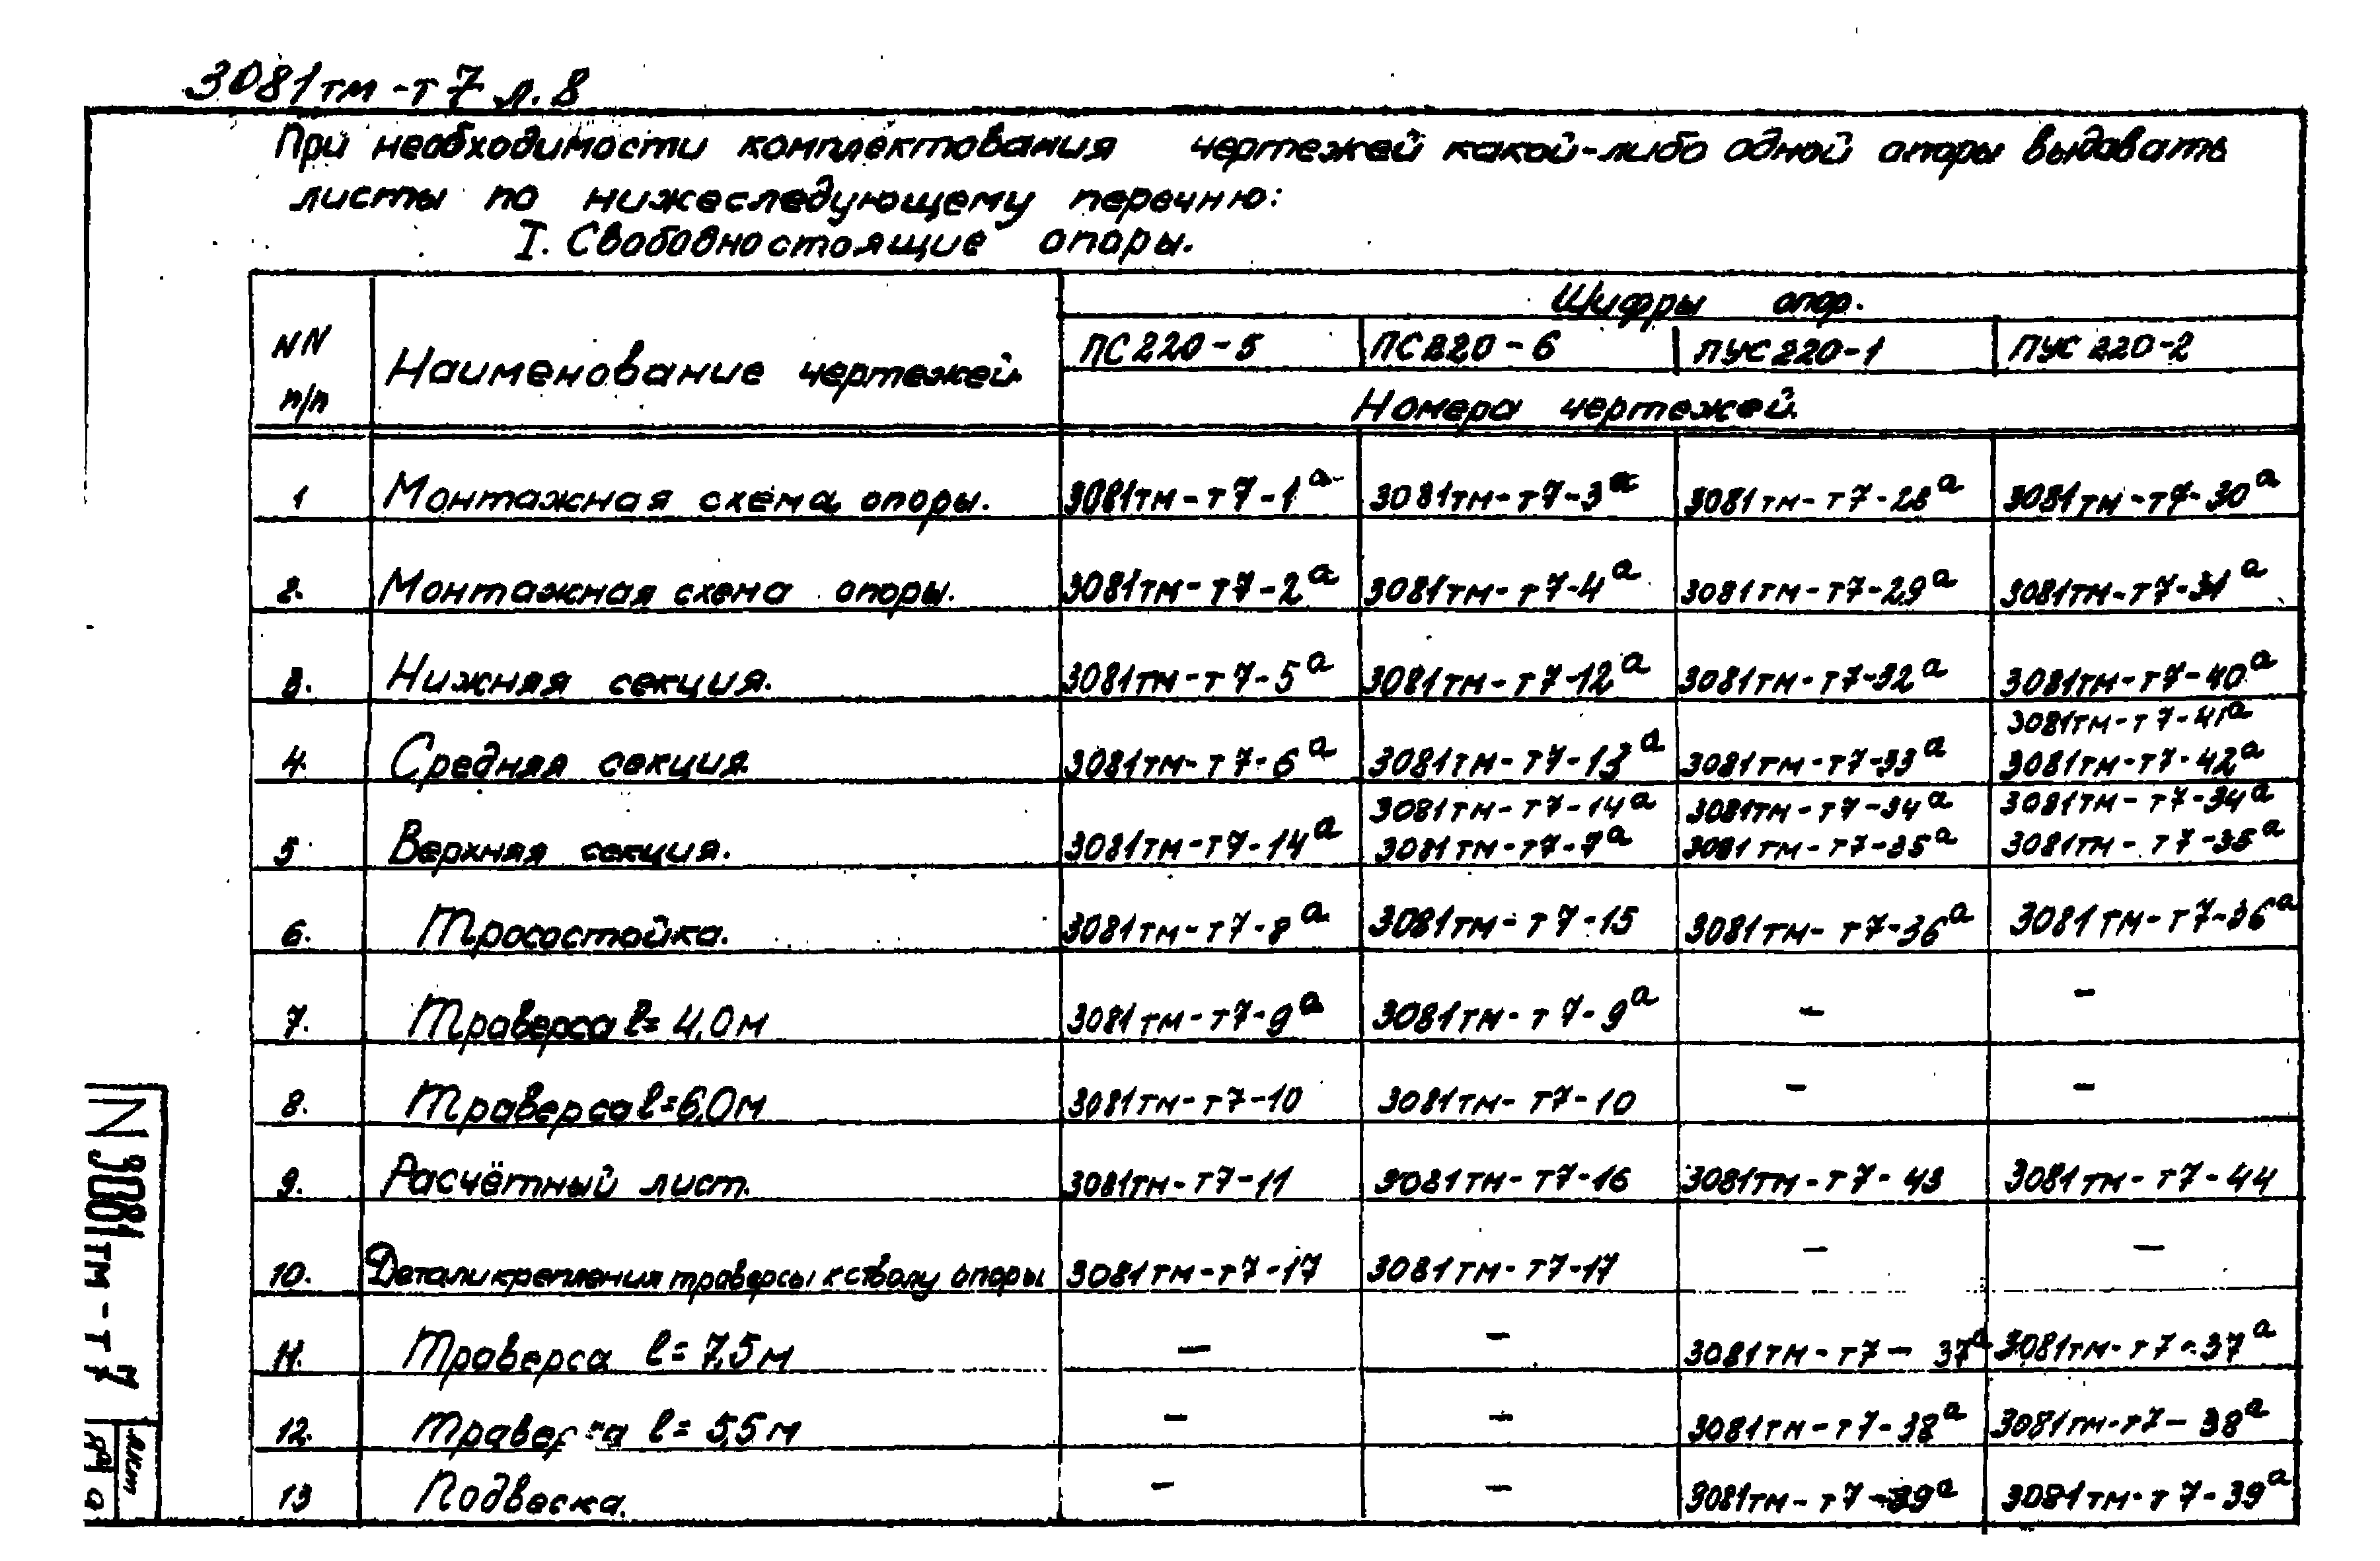 3081тм-т7 л.8
При необходимости комплектования чертежей какой-либо одной опоры выдавать
листы по нижеследующему перечню:
I. Свободностоящие опоры.
NN п/п Наименование чертежей Шифры опор.
ПС220-5 ПС220-6 ПУС220-1 ПУС220-2
Номера чертежей
1 Монтажная схема опоры. 3081тм-т7-1а 3081тм-т7-3а 3081тм-т7-28а 3081тм-т7-30а
2. Монтажная схема опоры. 3081тм-т7-2а 3081тм-т7-4а 3081тм-т7-29а 3081тм-т7-31а
3. Нижняя секция. 3081тм-т7-5а 3081тм-т7-12а 3081тм-т7-32а 3081тм-т7-40а
3081тм-т7-41а
4. Средняя секция 3081тм-т7-6а 3081тм-т7-13а 3081тм-т7-33а 3081тм-т7-42а
3081тм-т7-14а 3081тм-т7-34а 3081тм-т7-34а
5 Верхняя секция. 3081тм-т7-14а 3081тм-т7-7а 3081тм-т7-35а 3081тм-т7-35а
6. Тросостойка. 3081тм-т7-8а 3081тм-т7-15 3081тм-т7-36а 3081тм-т7-36а
7. Траверса l=4,0м 3081тм-т7-9а 3081тм-т7-9а - -
8. Траверса l=6,0м 3081тм-т7-10 3081тм-т7-10 - -
9. Расчётный лист. 3081тм-т7-11 3081тм-т7-16 3081тм-т7-43 3081тм-т7-44
10. Детали крепления траверсы к стволу опоры 3081тм-т7-17 3081тм-т7-17 - -
11. Траверса l=7,5м - - 3081тм-т7-37а 3081тм-т7-37а
12. Траверса l=5,5м - - 3081тм-т7-38а 3081тм-т7-38а
13 Подвеска. - - 3081тм-т7-39а 3081тм-т7-39а
N 3081тм-т7
Лист